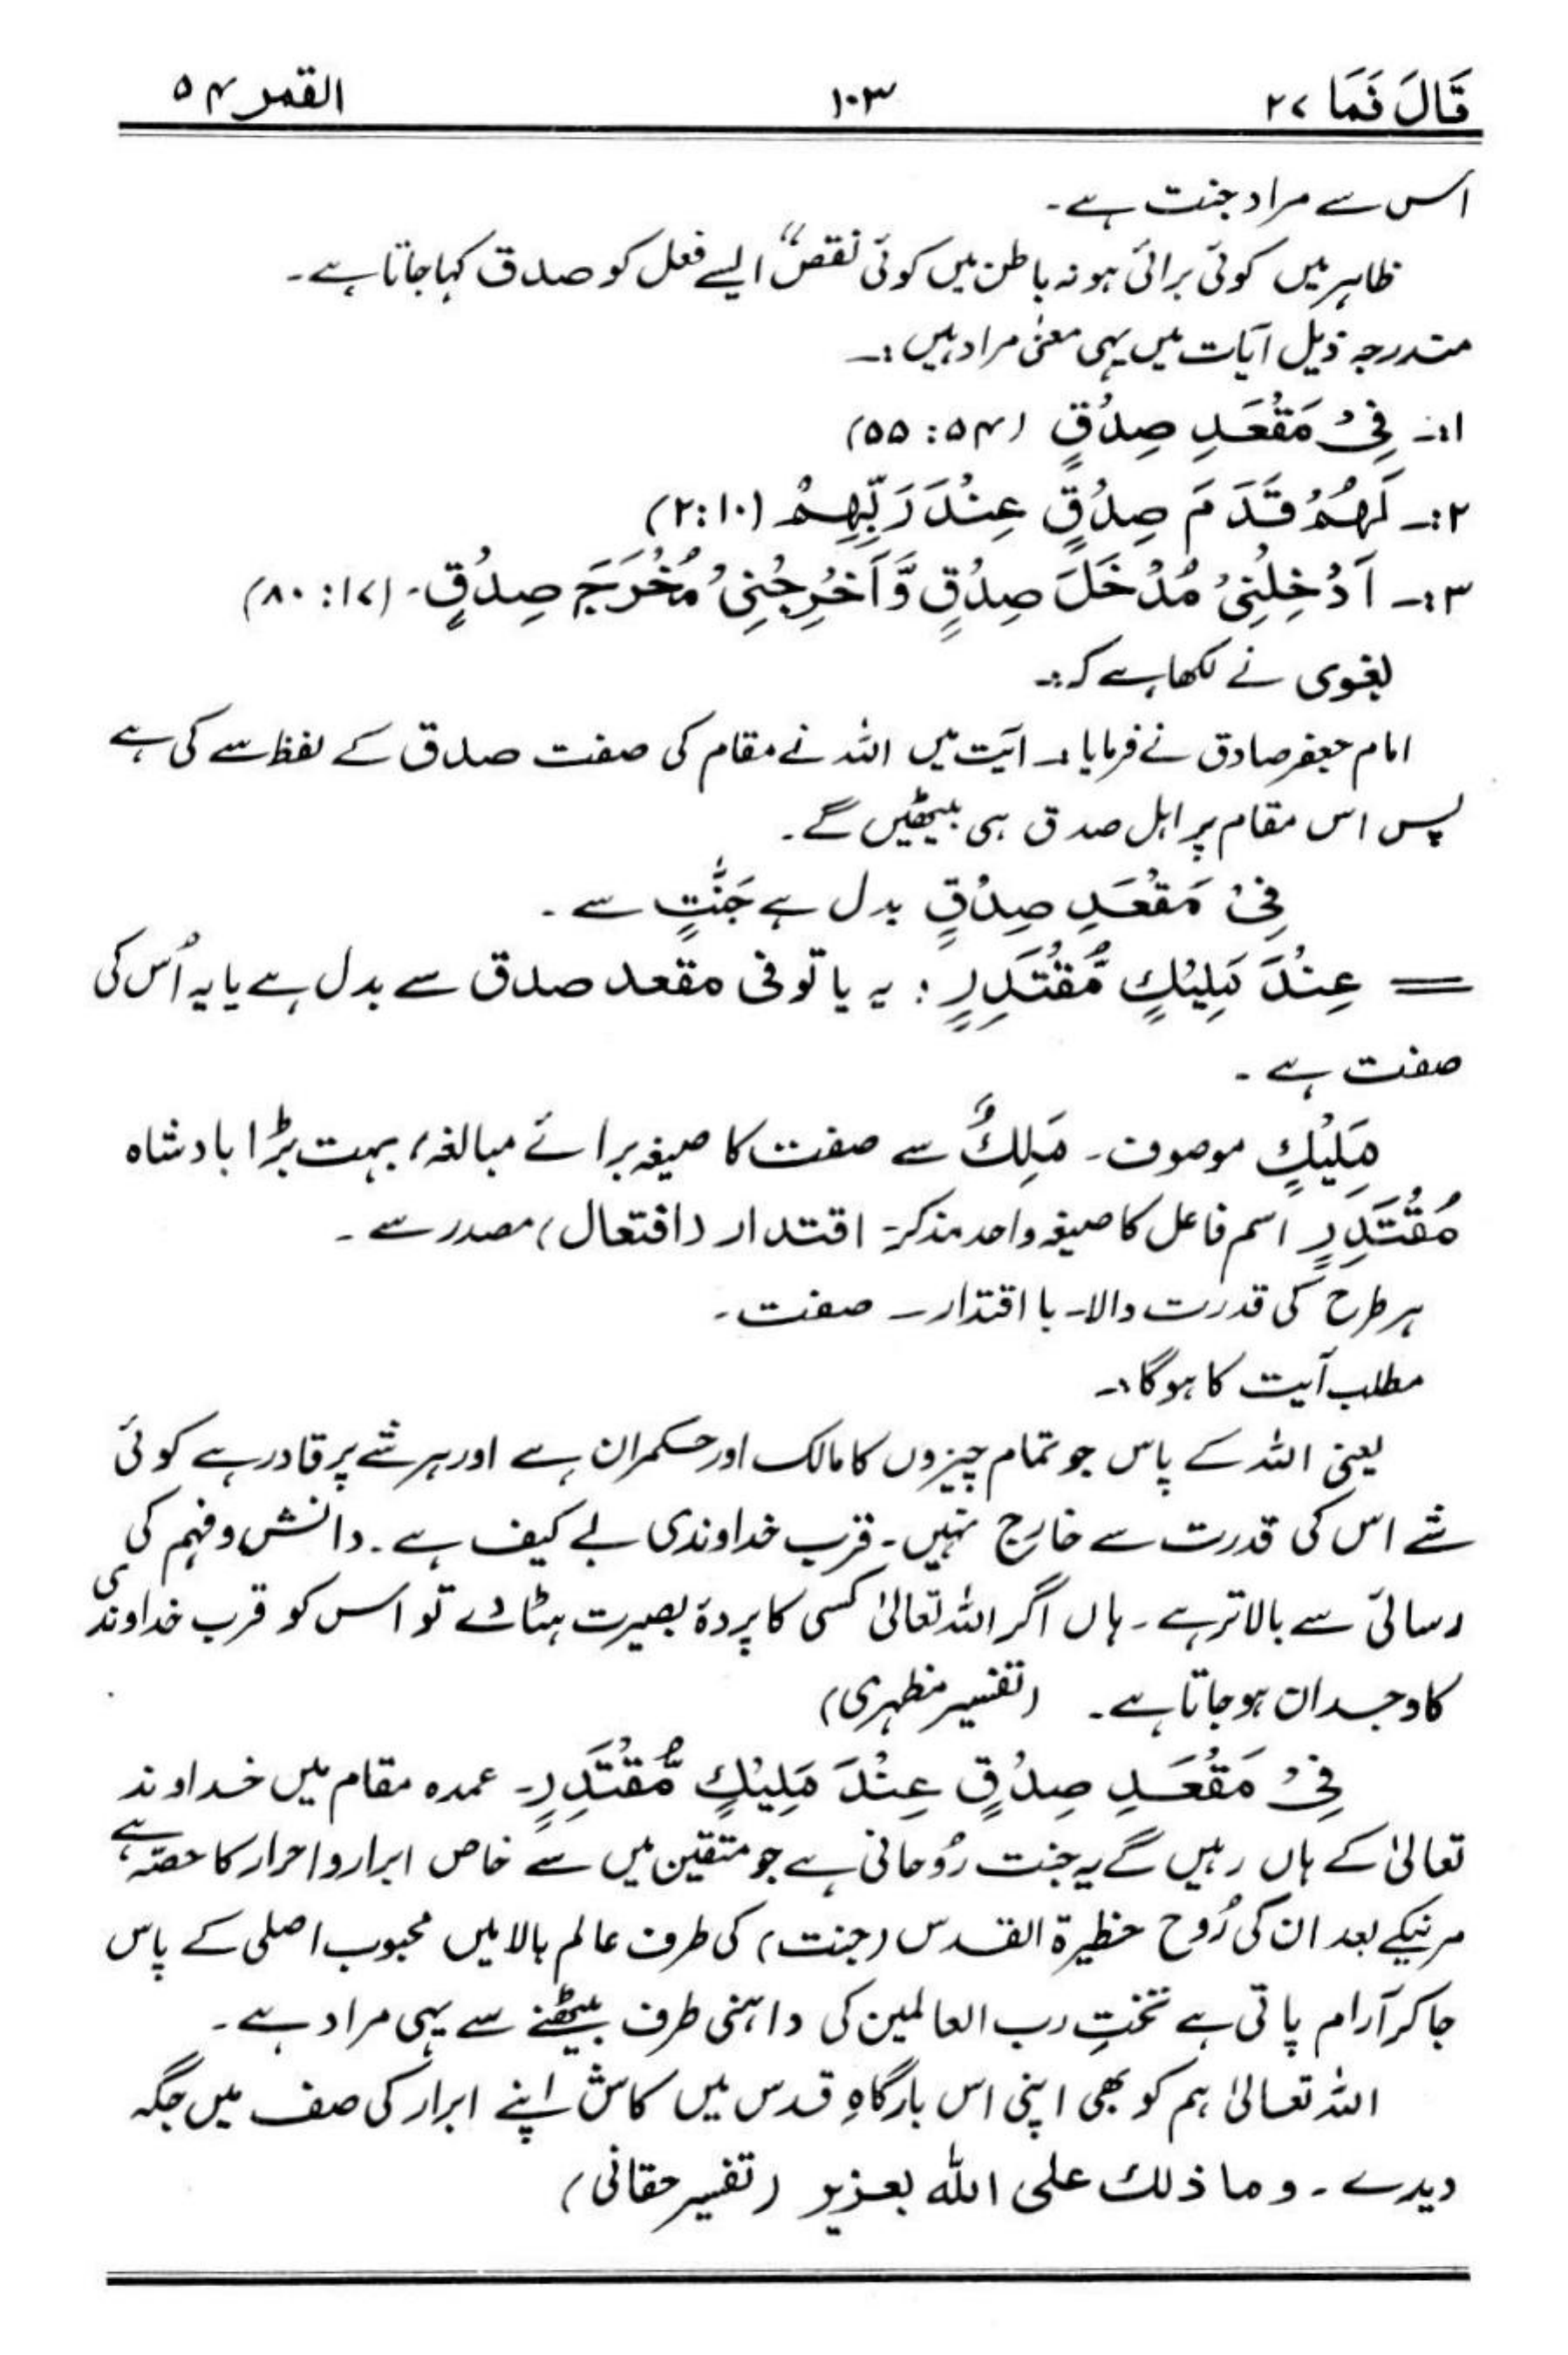 قَالَ فَمَا ۲۷ ۱۰۳ القمر ۵۴
اس سے مراد جنت ہے۔
ظاہر میں کوئی برائی ہو نہ باطن میں کوئی نقص“ ایسے فعل کو صدق کہا جاتا ہے۔
مندرجہ ذیل آیات میں یہی معنیٰ مراد ہیں :۔
۱:۔ فِیْ مَقْعَدِ صِدْقٍ (۵۴:۵۵)
۲:۔ لَہُمْ قَدَمَ صِدْقٍ عِنْدَ رَبِّہِمْ (۲:۱۰)
۳:۔ اَدْخِلْنِیْ مُدْخَلَ صِدْقٍ وَّاَخْرِجْنِیْ مُخْرَجَ صِدْقٍ۔ (۱۷:۸۰)
بغوی نے لکھا ہے کہ:۔
امام جعفر صادق نے فرمایا :۔ آیت میں اللہ نے مقام کی صفت صدق کے لفظ سے کی ہے
پس اس مقام پر اہل صدق ہی بیٹھیں گے۔
فِیْ مَقْعَدِ صِدْقٍ بدل ہے جَنّٰتٍ سے۔
= عِنْدَ مَلِیْکٍ مُّقْتَدِرٍ : یہ یا تو فی مقعد صدق سے بدل ہے یا یہ اُس کی
صفت ہے۔
مَلِیْکٍ موصوف۔ مَلِکٌ سے صفت کا صیغہ برائے مبالغہ، بہت بڑا بادشاہ
مُقْتَدِرٍ اسم فاعل کا صیغہ واحد مذکر۔ اقتدار (افتعال) مصدر سے۔
ہر طرح کی قدرت والا۔ با اقتدار۔ صفت۔
مطلب آیت کا ہوگا:۔
یعنی اللہ کے پاس جو تمام چیزوں کا مالک اور حکمران ہے اور ہر شے پر قادر ہے کوئی
شے اس کی قدرت سے خارج نہیں۔ قرب خداوندی بے کیف ہے۔ دانش و فہم کی
رسائی سے بالاتر ہے۔ ہاں اگر اللہ تعالیٰ کسی کا پردۂ بصیرت ہٹا دے تو اس کو قرب خداوندی
کا وجدان ہو جاتا ہے۔ (تفسیر مظہری)
فِیْ مَقْعَدِ صِدْقٍ عِنْدَ مَلِیْکٍ مُّقْتَدِرٍ۔ عمدہ مقام میں خداوند
تعالیٰ کے ہاں رہیں گے یہ جنت رُوحانی ہے جو متقین میں سے خاص ابرار و احرار کا حصّہ ہے،
مرنیکے بعد ان کی رُوح حظیرۃ القدس (جنت) کی طرف عالم بالا میں محبوب اصلی کے پاس
جا کر آرام پاتی ہے تختِ رب العالمین کی داہنی طرف بیٹھنے سے یہی مراد ہے۔
اللہ تعالیٰ ہم کو بھی اپنی اس بارگاہِ قدس میں کاش اپنے ابرار کی صف میں جگہ
دیدے۔ وما ذلك علی اللہ بعزیز (تفسیر حقانی)